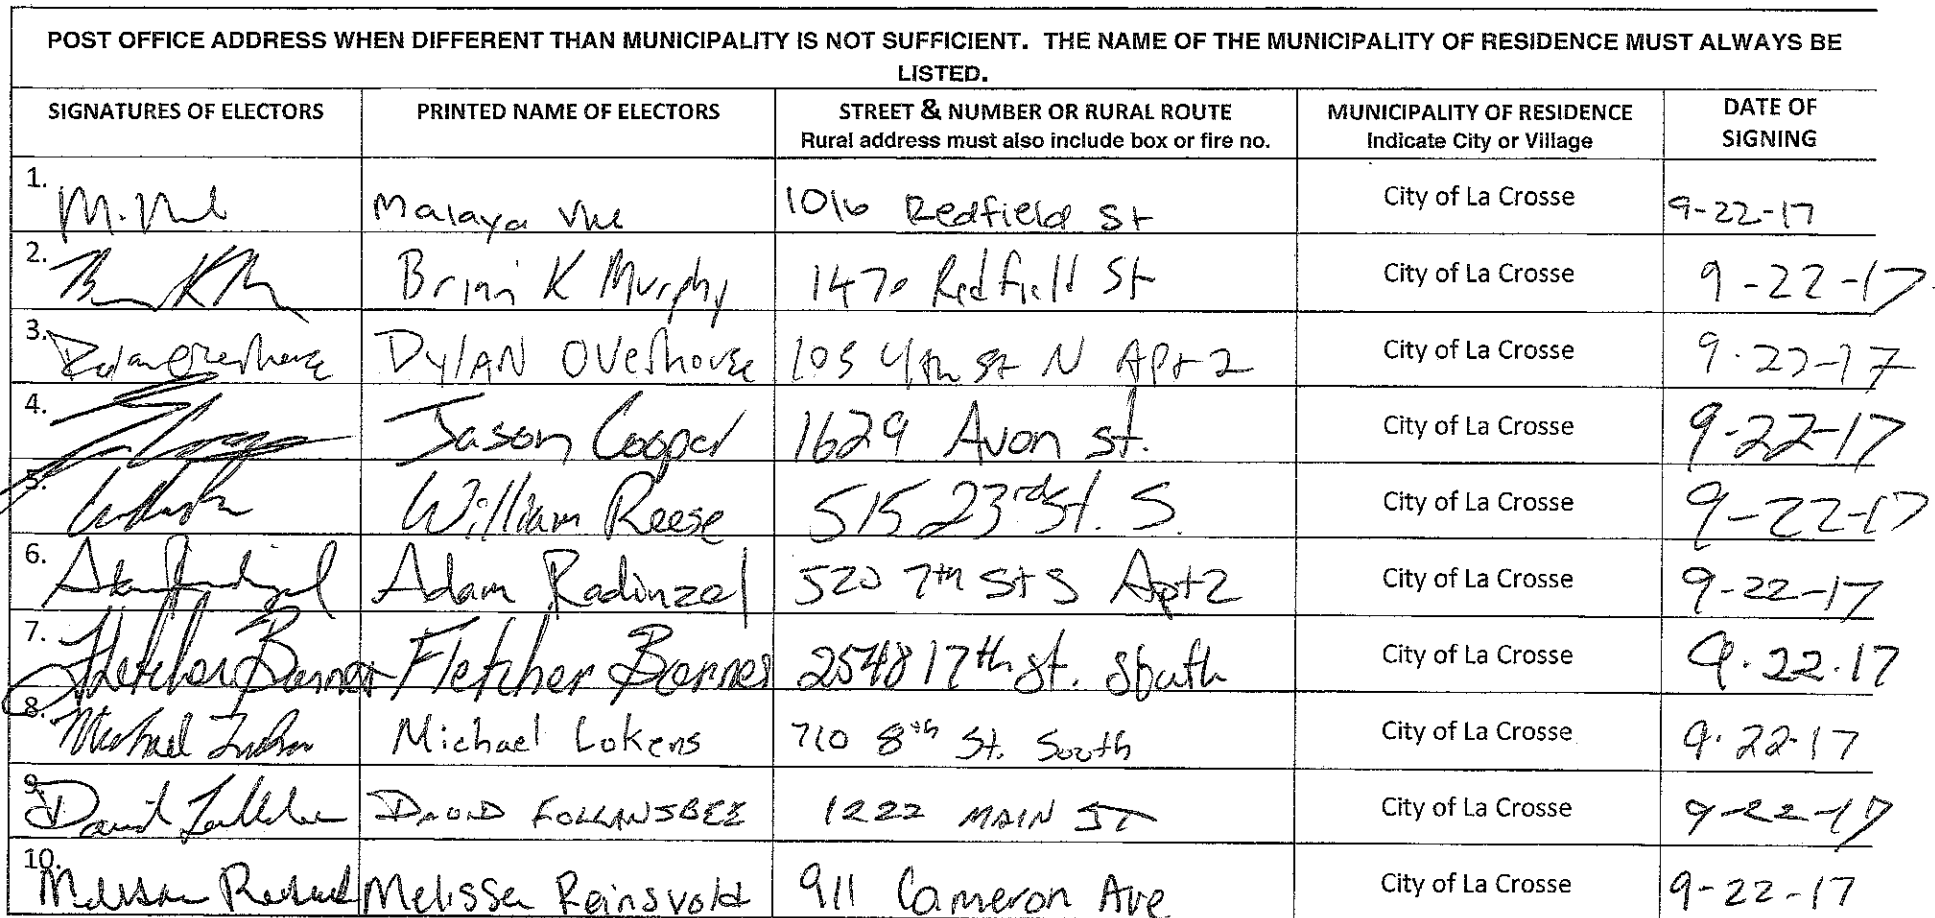 POST OFFICE ADDRESS WHEN DIFFERENT THAN MUNICIPALITY IS NOT SUFFICIENT. THE NAME OF THE MUNICIPALITY OF RESIDENCE MUST ALWAYS BE
LISTED.
SIGNATURES OF ELECTORS PRINTED NAME OF ELECTORS STREET & NUMBER OR RURAL ROUTE MUNICIPALITY OF RESIDENCE DATE OF
Rural address must also include box or fire no. Indicate City or Village SIGNING
1. Malaya 1016 Redfield St City of La Crosse 9-22-17
2. Brian K Murphy 1470 Redfield St City of La Crosse 9-22-17
3. Dylan Overhouse DylAN Overhouse 105 4th St N Apt 2 City of La Crosse 9-22-17
4. Jason Cooper 1629 Avon st. City of La Crosse 9-22-17
5. William Reese 515 23rd St. S. City of La Crosse 9-22-17
6. Adam Radinzel Adam Radinzel 520 7th St S Apt 2 City of La Crosse 9-22-17
7. Fletcher Fletcher 2548 17th st. South City of La Crosse 9.22.17
8. Michael Michael Lokens 710 8th St. South City of La Crosse 9.22.17
9. David DAVID FOLLANSBEE 1222 MAIN ST City of La Crosse 9-22-17
10. Melissa Melissa Reinsvold 911 Cameron Ave City of La Crosse 9-22-17